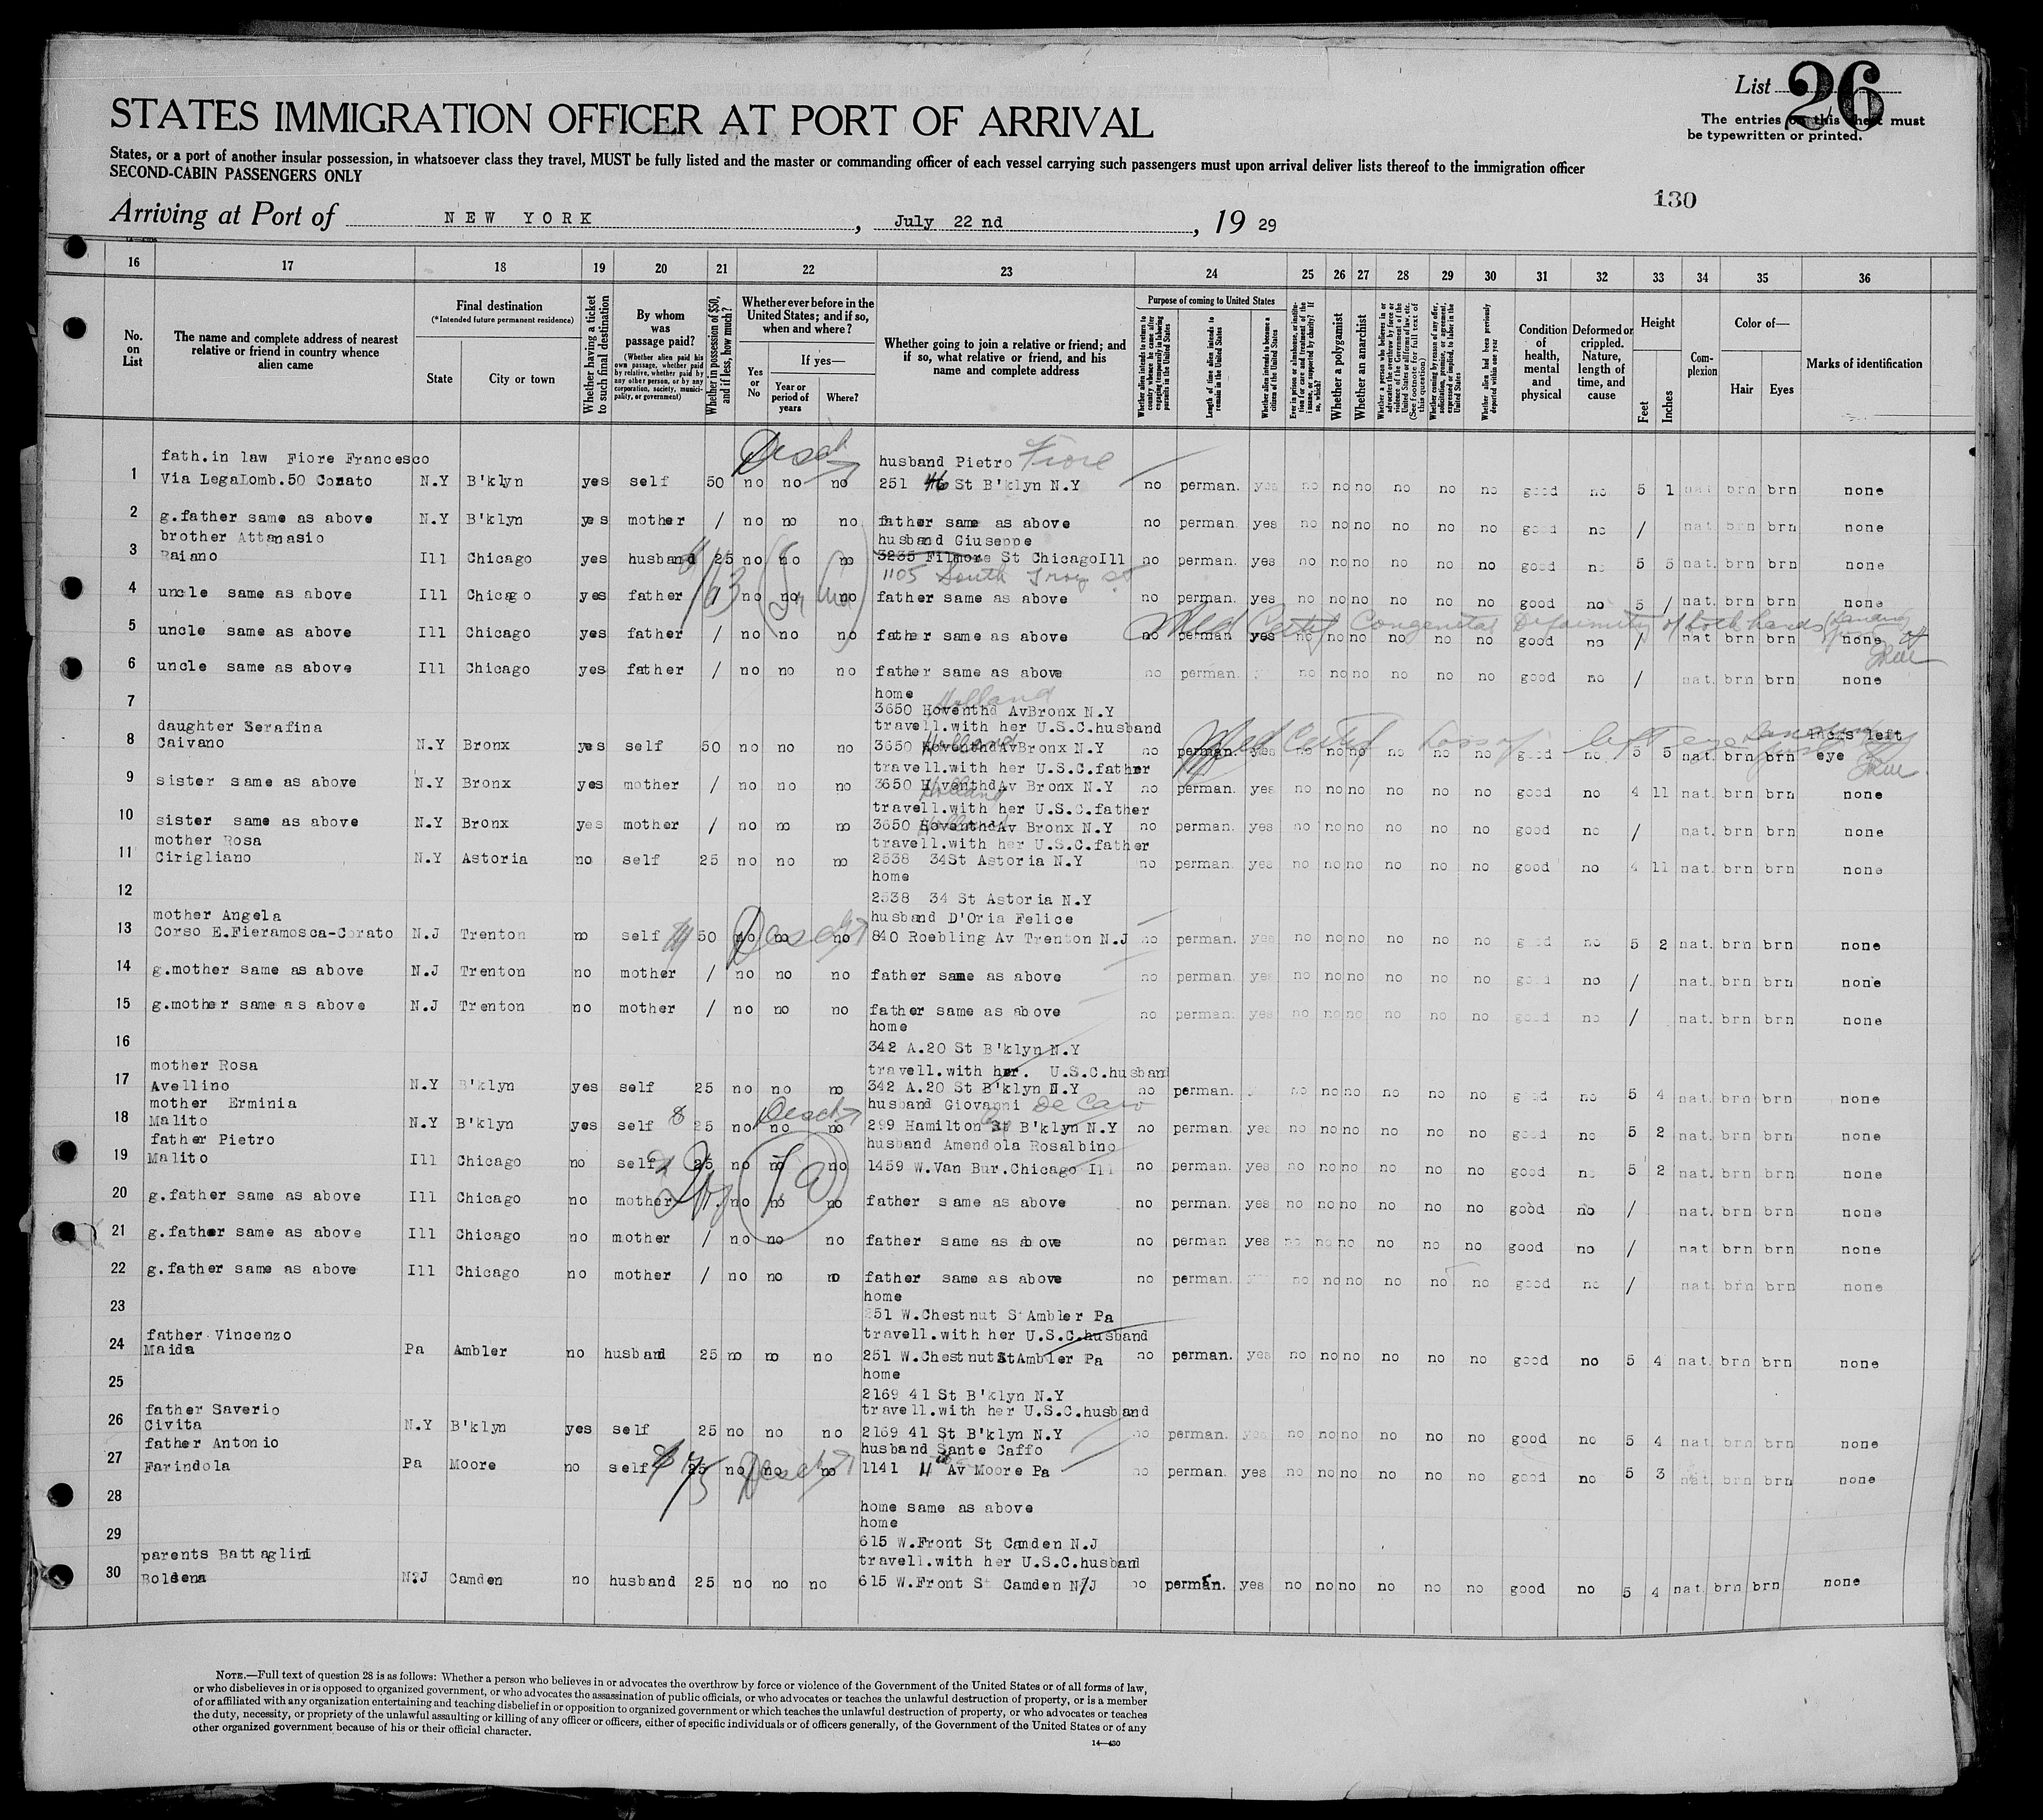 List 26
The entries on this sheet must
be typewritten or printed.
STATES IMMIGRATION OFFICER AT PORT OF ARRIVAL
States, or a port of another insular possession, in whatsoever class they travel, MUST be fully listed and the master or commanding officer of each vessel carrying such passengers must upon arrival deliver lists thereof to the immigration officer
SECOND-CABIN PASSENGERS ONLY
130
Arriving at Port of NEW YORK, July 22 nd, 19 29
16 17 18 19 20 21 22 23 24 25 26 27 28 29 30 31 32 33 34 35 36
No. on List
The name and complete address of nearest relative or friend in country whence alien came
Final destination
(*Intended future permanent residence)
State
City or town
Whether having a ticket to such final destination
By whom was passage paid?
(Whether alien paid his own passage, whether paid by relative, whether paid by any other person, or by any corporation, society, municipality, or government)
Whether in possession of $50, and if less, how much?
Whether ever before in the United States; and if so, when and where?
Yes or No
If yes—
Year or period of years
Where?
Whether going to join a relative or friend; and if so, what relative or friend, and his name and complete address
Purpose of coming to United States
Whether alien intends to return to country whence he came after engaging temporarily in laboring pursuits in the United States
Length of time alien intends to remain in the United States
Whether alien intends to become a citizen of the United States
Ever in prison or almshouse, or institution for care and treatment of the insane, or supported by charity? If so, which?
Whether a polygamist
Whether an anarchist
Whether a person who believes in or advocates the overthrow by force or violence of the Government of the United States or all forms of law, etc. (See footnote for full text of this question)
Whether coming by reason of any offer, solicitation, promise, or agreement, expressed or implied, to labor in the United States
Whether alien had been previously deported within one year
Condition of health, mental and physical
Deformed or crippled. Nature, length of time, and cause
Height
Feet
Inches
Complexion
Color of—
Hair
Eyes
Marks of identification
fath.in law Fiore Francesco husband Pietro Fiore
1 Via LegaLomb.50 Corato N.Y B'klyn yes self 50 no no no 251 46 St B'klyn N.Y no perman. yes no no no no no no good no 5 1 nat brn brn none
2 g.father same as above N.Y B'klyn yes mother / no no no father same as above no perman yes no no no no no no good no / nat brn brn none
brother Attanasio husband Giuseppe
3 Baiano Ill Chicago yes husband 25 no no no 3235 Filmore St ChicagoIll no perman. yes no no no no no no good no 5 5 nat. brn brn none
1105 South Troy St
4 uncle same as above Ill Chicago yes father / no no no father same as above no perman. yes no no no no no no good no 5 / nat. brn brn none
Med Certif Congenital Deformity of both hands
5 uncle same as above Ill Chicago yes father / no no no father same as above no perman yes no no no no no no good no / nat brn brn none
6 uncle same as above Ill Chicago yes father / no no no father same as above no perman. no no no no no no good no / nat. brn brn none
home
7 3650 Hoventhd AvBronx N.Y
Holland
daughter Serafina travell.with her U.S.C.husband
Med Certif Loss of left eye
8 Caivano N.Y Bronx yes self 50 no no no 3650 Hoventhd AvBronx N.Y no perman. yes no no no no no no good no 5 5 nat. brn brn eye
Holland
travell.with her U.S.C.father
9 sister same as above N.Y Bronx yes mother / no no no 3650 HoventhdAv Bronx N.Y no perman. yes no no no no no no good no 4 11 nat. brn brn none
Holland
travell.with her U.S.C.father
10 sister same as above N.Y Bronx yes mother / no no no 3650 HoventhdAv Bronx N.Y no perman. yes no no no no no no good no / nat. brn brn none
mother Rosa travell.with her U.S.C.father
11 Cirigliano N.Y Astoria no self 25 no no no 2538 34St Astoria N.Y no perman. yes no no no no no no good no 4 11 nat. brn brn none
home
12 2538 34 St Astoria N.Y
mother Angela husband D'Oria Felice
13 Corso E.Fieramosca-Corato N.J Trenton no self 50 no no no 840 Roebling Av Trenton N.J no perman. yes no no no no no no good no 5 2 nat. brn brn none
14 g.mother same as above N.J Trenton no mother / no no no father same as above no perman. yes no no no no no no good no / nat. brn brn none
15 g.mother same as above N.J Trenton no mother / no no no father same as above no perman. yes no no no no no no good no / nat. brn brn none
home
16 342 A.20 St B'klyn N.Y
mother Rosa travell.with her. U.S.C.husband
17 Avellino N.Y B'klyn yes self 25 no no no 342 A.20 St B'klyn N.Y no perman. no no no no no no good no 5 4 nat. brn brn none
mother Erminia husband Giovanni De Caro
18 Malito N.Y B'klyn yes self 25 no no no 299 Hamilton St B'klyn N.Y no perman. yes no no no no no no good no 5 2 nat. brn brn none
father Pietro husband Amendola Rosalbino
19 Malito Ill Chicago no self 25 no no no 1459 W.Van Bur.Chicago Ill no perman. yes no no no no no no good no 5 2 nat. brn brn none
20 g.father same as above Ill Chicago no mother / no no no father same as above no perman. yes no no no no no no good no / nat. brn brn none
21 g.father same as above Ill Chicago no mother / no no no father same as above no perman yes no no no no no no good no / nat brn brn none
22 g.father same as above Ill Chicago no mother / no no no father same as above no perman. no no no no no no good no / nat brn brn none
home
23 251 W.Chestnut St Ambler Pa
father Vincenzo travell.with her U.S.C.husband
24 Maida Pa Ambler no husband 25 no no no 251 W.Chestnut StAmbler Pa no perman. yes no no no no no no good no 5 4 nat. brn brn none
home
25 2169 41 St B'klyn N.Y
father Saverio travell.with her U.S.C.husband
26 Civita N.Y B'klyn yes self 25 no no no 2169 41 St B'klyn N.Y no perman. yes no no no no no no good no 5 4 nat brn brn none
father Antonio husband Sante Caffo
27 Farindola Pa Moore no self 25 no no no 1141 11 Av Moore Pa no perman. yes no no no no no no good no 5 3 nat. brn brn none
28 home same as above
home
29 615 W.Front St Camden N.J
parents Battaglini travell.with her U.S.C.husband
30 Bolsena N.J Camden no husband 25 no no no 615 W.Front St Camden N.J no perman. yes no no no no no no good no 5 4 nat. brn brn none
NOTE.—Full text of question 28 is as follows: Whether a person who believes in or advocates the overthrow by force or violence of the Government of the United States or of all forms of law,
or who disbelieves in or is opposed to organized government, or who advocates the assassination of public officials, or who advocates or teaches the unlawful destruction of property, or is a member
of or affiliated with any organization entertaining and teaching disbelief in or opposition to organized government or which teaches the unlawful destruction of property, or who advocates or teaches
the duty, necessity, or propriety of the unlawful assaulting or killing of any officer or officers, either of specific individuals or of officers generally, of the Government of the United States or of any
other organized government because of his or their official character.
14—430